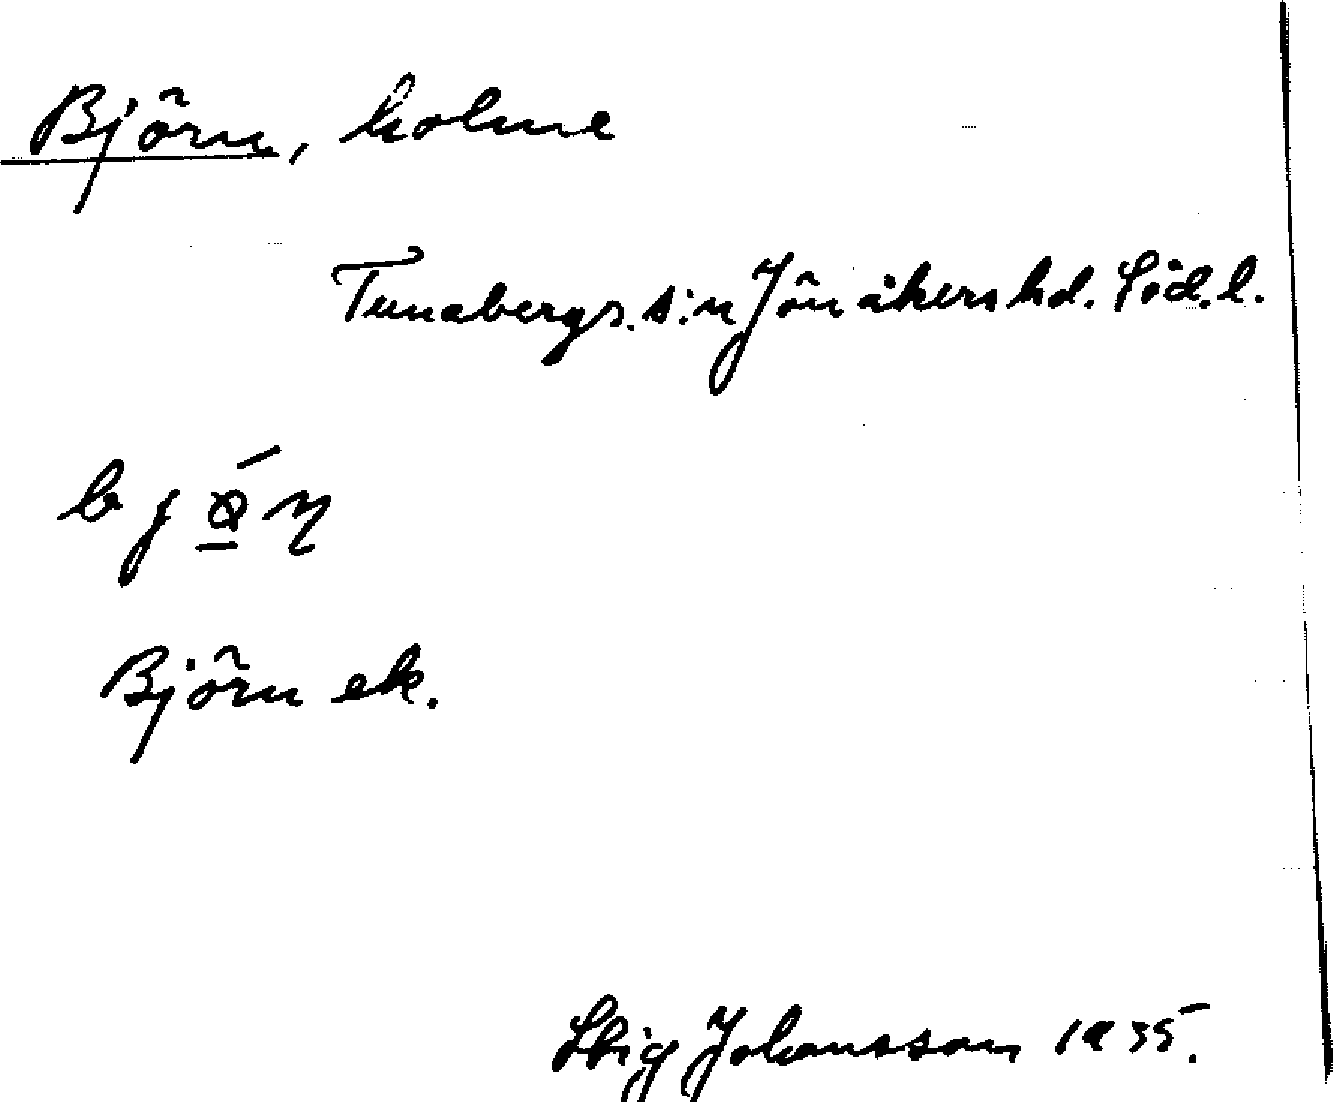 Björn, holme
Tunabergs. s:n Jönåkers hd. Söd. l.
Björn ek.
Stig Johansson 1935.